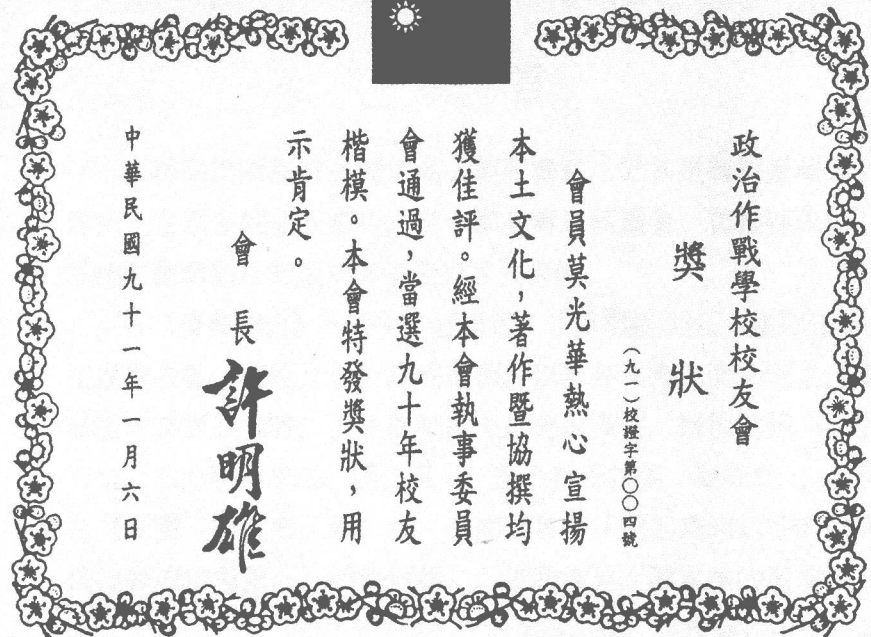 政治作戰學校校友會
獎狀
（九一）校證字第〇〇四號
會員莫光華熱心宣揚
本土文化，著作暨協撰均
獲佳評。經本會執事委員
會通過，當選九十年校友
楷模。本會特發獎狀，用
示肯定。
會長 許明雄
中華民國九十一年一月六日